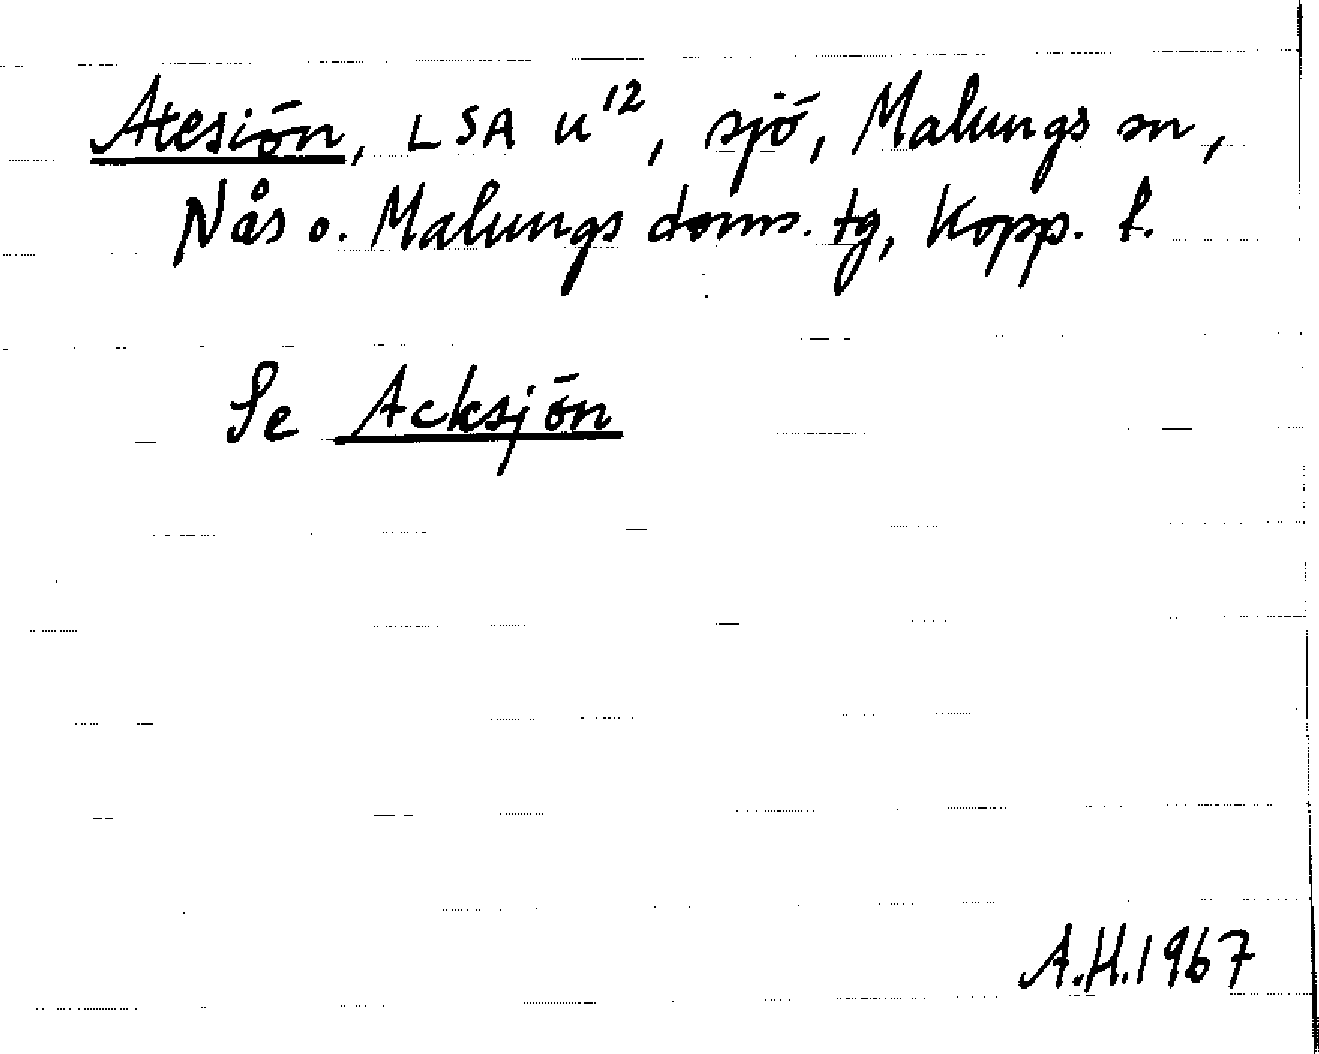 Atesiön, LSA u¹², sjö, Malungs sn,
Nås o. Malungs doms. tg, Kopp. l.
Se Acksjön
A.H. 1967